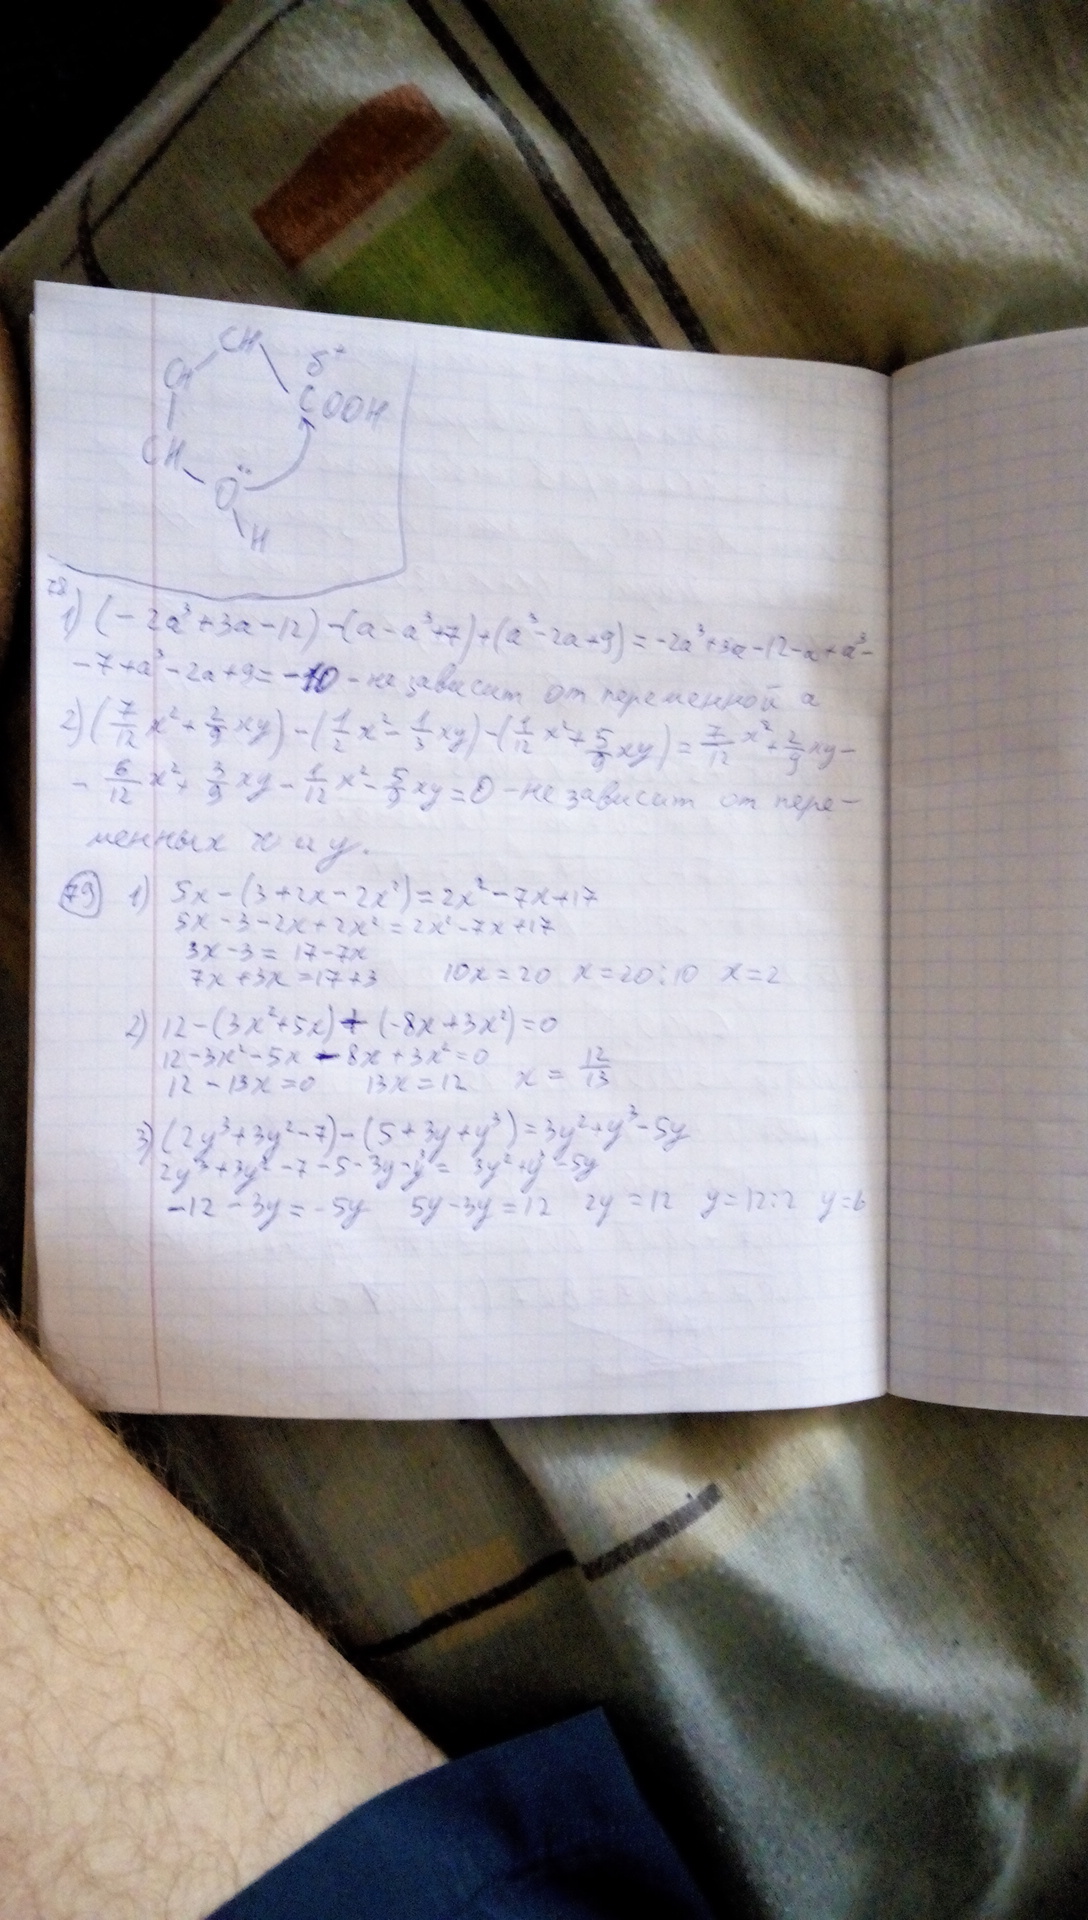 CH
δ+
CH
COOH
CH
Ö
H
78
1) (-2a³+3a-12)-(a-a³+7)+(a³-2a+9)=-2a³+3a-12-a+a³-
-7+a³-2a+9=-10-не зависит от переменной a
2) (7/12 x²+2/9 xy)-(1/2 x²-1/3 xy)-(1/12 x²+5/9 xy)=7/12 x²+2/9 xy-
-6/12 x²+3/9 xy-1/12 x²-5/9 xy=0-не зависит от пере-
менных x и y.
79 1) 5x-(3+2x-2x²)=2x²-7x+17
5x-3-2x+2x²=2x²-7x+17
3x-3=17-7x
7x+3x=17+3 10x=20 x=20:10 x=2
2) 12-(3x²+5x)+(-8x+3x²)=0
12-3x²-5x-8x+3x²=0
12-13x=0 13x=12 x=12/13
3) (2y³+3y²-7)-(5+3y+y³)=3y²+y³-5y
2y³+3y²-7-5-3y-y³=3y²+y³-5y
-12-3y=-5y 5y-3y=12 2y=12 y=12:2 y=6